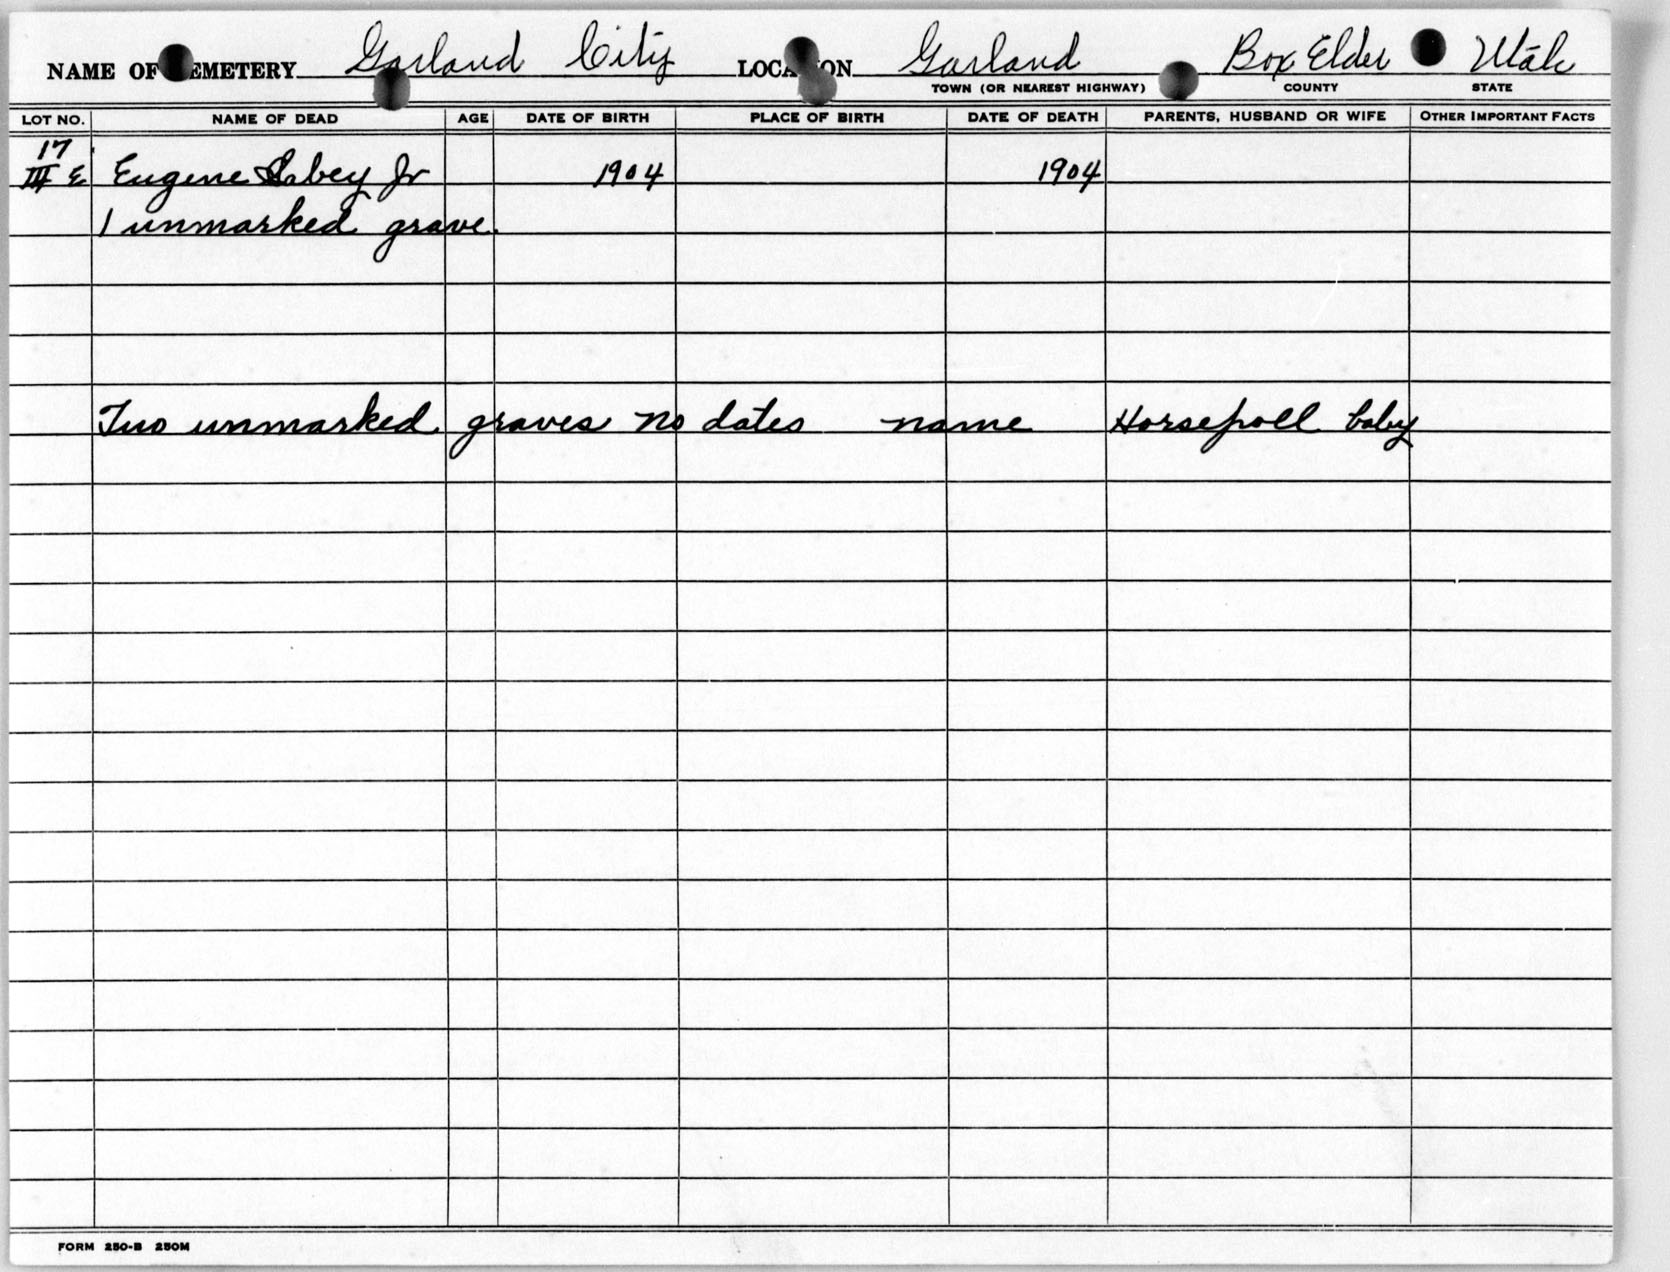 NAME OF CEMETERY Garland City LOCATION Garland Box Elder Utah
TOWN (OR NEAREST HIGHWAY) COUNTY STATE
LOT NO. NAME OF DEAD AGE DATE OF BIRTH PLACE OF BIRTH DATE OF DEATH PARENTS, HUSBAND OR WIFE OTHER IMPORTANT FACTS
17
III E Eugene Sabey Jr 1904 1904
1 unmarked grave.
Two unmarked graves no dates name Horsepoll baby
FORM 250-B 250M